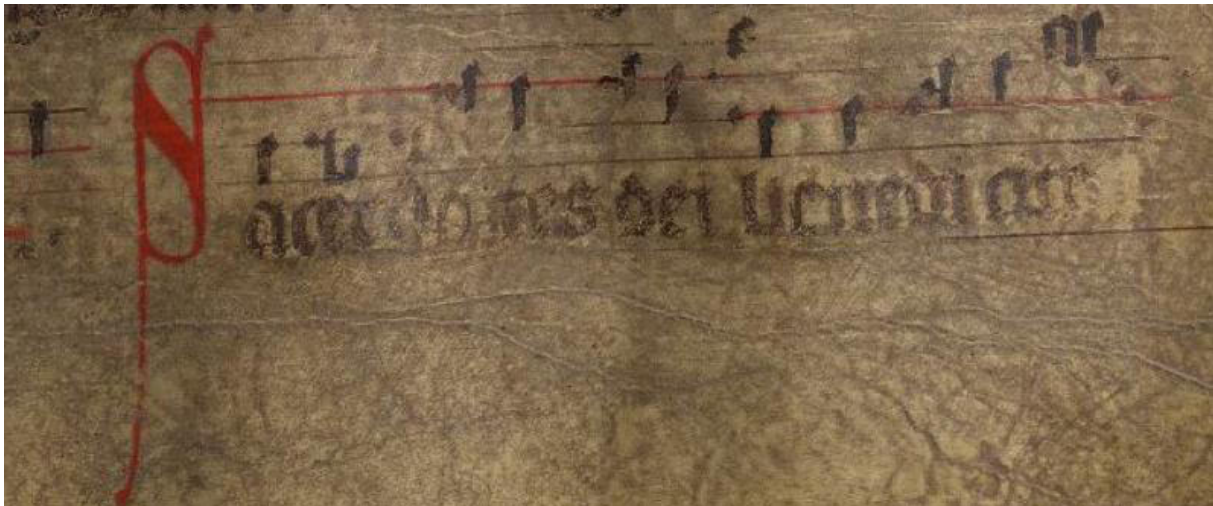 Sacerdotes dei benedicite